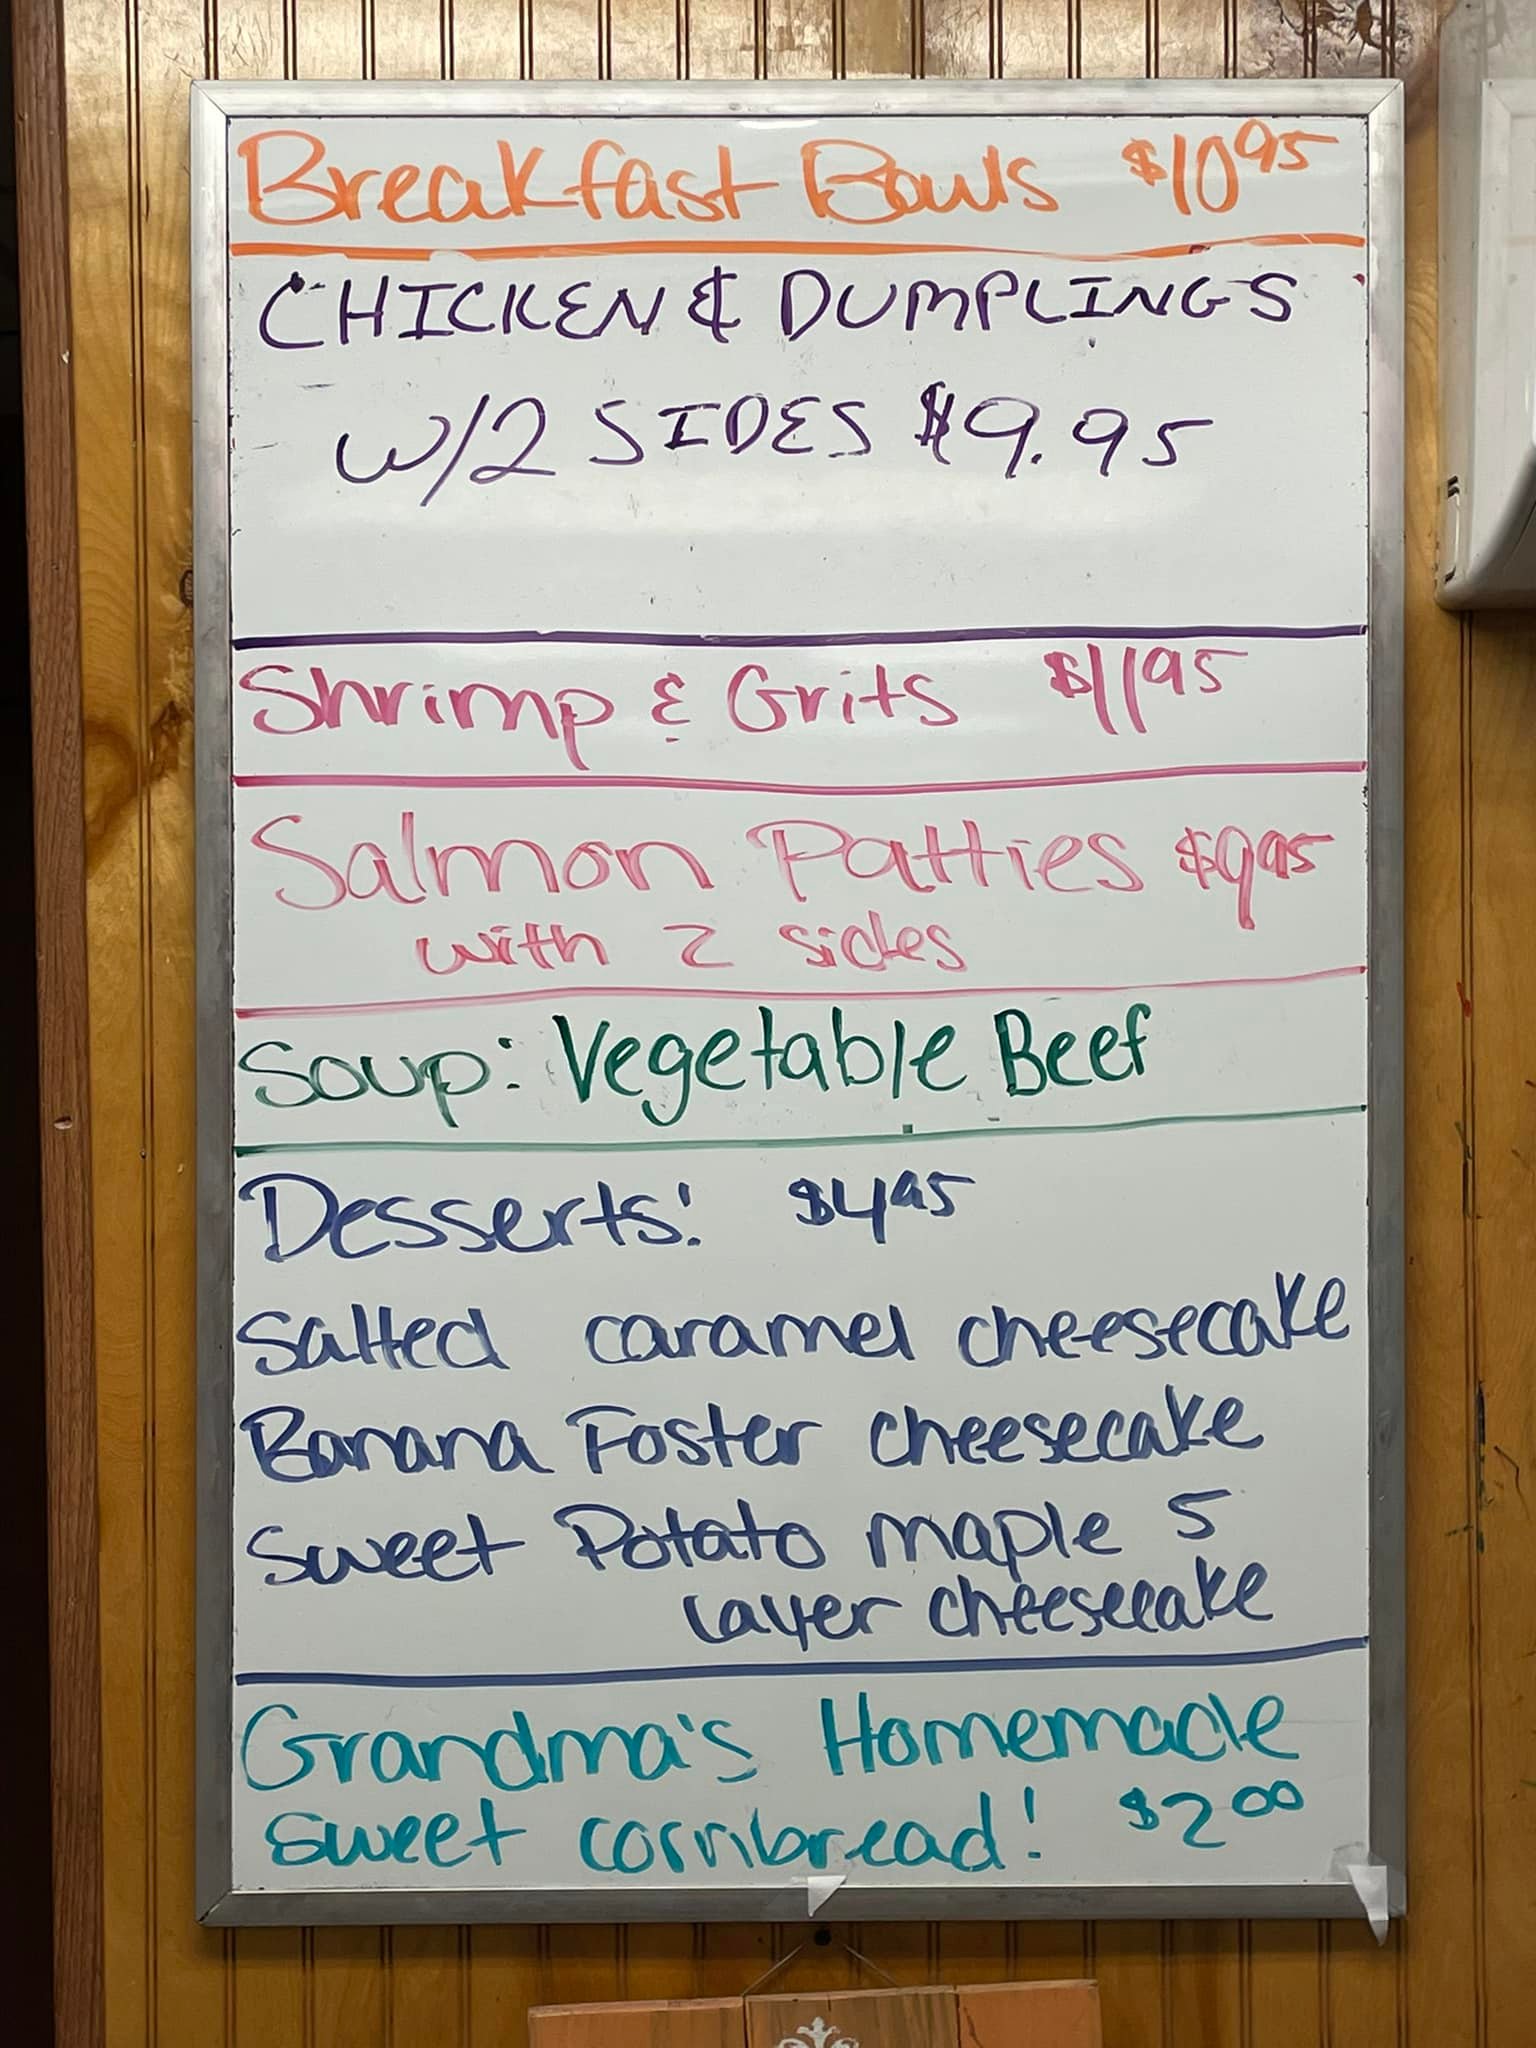 Breakfast Bowls $10.95
CHICKEN & DUMPLINGS
W/2 SIDES $9.95
Shrimp & Grits $11.95
Salmon Patties $9.95
with 2 sides
Soup: Vegetable Beef
Desserts: $4.95
Salted caramel cheesecake
Banana Foster cheesecake
Sweet Potato maple 5
Layer cheesecake
Grandma's Homemade
sweet cornbread! $2.00